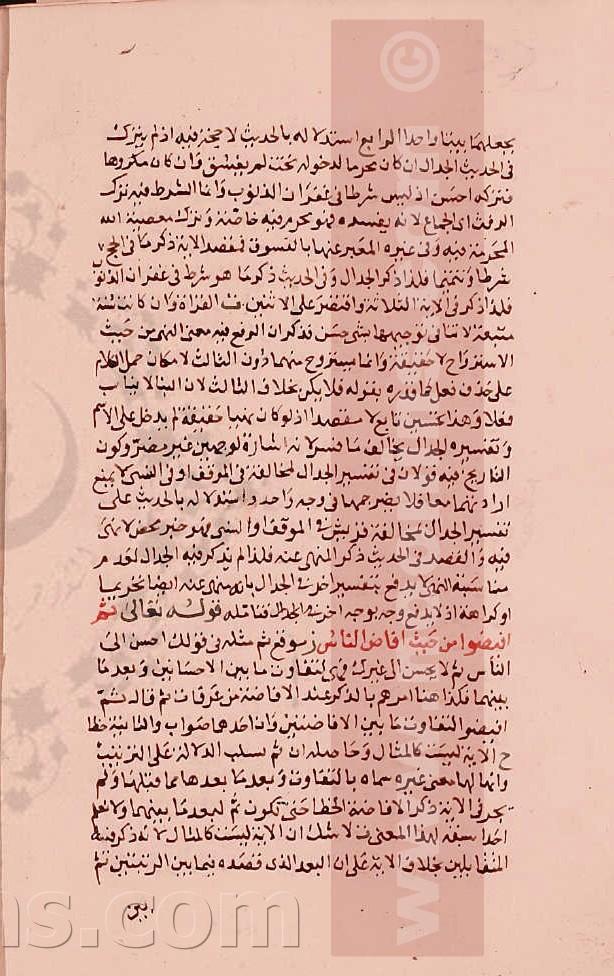 يجعلهما بيتا واحدا الرابع استدلاله بالحديث لا حجة فيه اذ لم يترك
في الحديث الجدال ان كان محرما لدخوله تحت لم يفسق وان كان مكروها
فتركه احسن اذ ليس شرطا في غفران الذنوب وانما الشرط فيه ترك
الرفث اي الجماع لانه يفسده فهو محرم فيه خاصة وترك معصية الله
المحرمة فيه وفي غيره المعبر عنها بالفسوق فقصد الاية ذكر ما في الحج
شرطا وتتمتها فلذا ذكر الجدال وفي الحديث ذكر ما هو شرط في غفران الذنوب
فلذا ذكر في الاية الثلاثة واقتصر على الاثنين ف القراءة وان كانت سنة
متبعة لانا في توجيهها شيء حسن فذكر ان الرفع فيه معنى النهي من حيث
الاسترواح لا حقيقة وانما يستروح منهما دون الثالث لامكان حمل الكلام
على حذف فعل كما قدره بقوله فلا يكن بخلاف الثالث لان البنا لا يناسب
فعلا وهذا تحسين تابع لا مقصد اذ لو كان نهيا حقيقة لم يدخل على الاسم
وتفسيره الجدال يخالف ما فسر لانه اشارة لوجهين غير مضر وكون
التاريخ فيه قولان في تفسير الجدال لمخالفة في الموقف او في النسئ لا يمنع
ارادتهما معا فلا يضر جمعها في وجه واحد واستدلاله بالحديث على
تفسير الجدال بمخالفة قريش في الموقف والنسئ فهو خبر محض لا نهى
فيه والقصد في الحديث ذكر المنهي عنه فلذا لم يذكر فيه الجدال لعدم
مناسبة النهي لا يدفع بتفسير اخر في الجدال بانه منهى عنه ايضا تحريما
او كراهة اذ لا يدفع وجه بوجه اخر في الجدال فتامله قوله تعالى ثم
افيضوا من حيث افاض الناس ز موقع ثم مثله في قولك احسن الى
الناس ثم لا يحسن الى غيرك فهي لتفاوت ما بين الاحسانين وبعد ما
بينهما فكذا هنا امرهم بالذكر عند الافاضة من عرفات ثم قال ثم
افيضوا لتفاوت ما بين الافاضتين وان احدهما صواب والثانية خطا
ح الاية ليست كالمثال وحاصله ان ثم سلب الدلالة على الترتيب
وانها لها معنى غيره سماه بالتفاوت وبعد ما بعدها مما قبلها ولم
يجر في الاية ذكر الافاضة الخطا حتى تكون ثم لبعد ما بينهما ولا نعلم
احدا سبقه لهذا المعنى ف لا شك ان الاية ليست كالمثال لانه ذكر فيه
المتقابلين بخلاف الاية على ان البعد الذي قصده فيما بين الرتبتين ثم